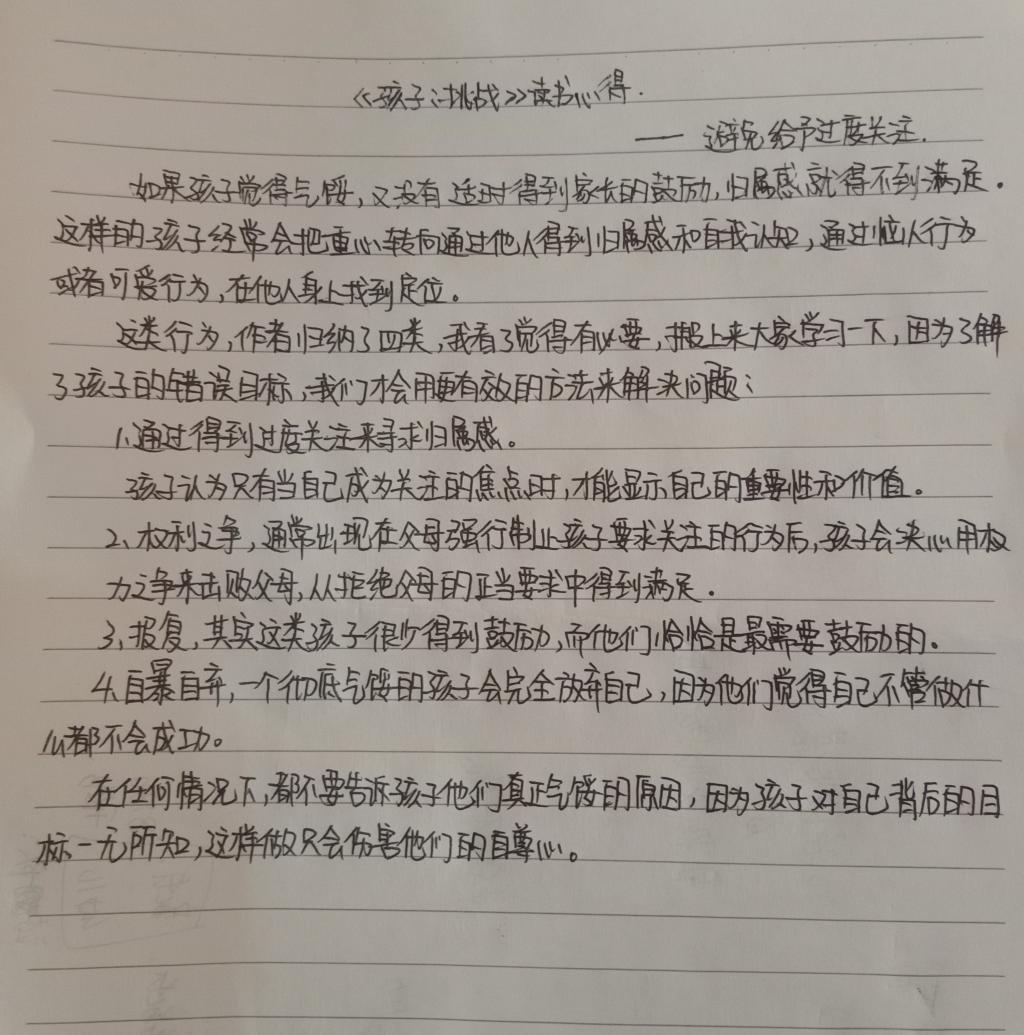 《孩子:挑战》读书心得.
—— 避免给予过度关注.
如果孩子觉得气馁,又没有适时得到家长的鼓励,归属感就得不到满足。
这样的孩子经常会把重心转向通过他人得到归属感和自我认知,通过恼人行为
或者可爱行为,在他人身上找到定位。
这类行为,作者归纳了四类,我看了觉得有必要,搬上来大家学习一下,因为了解
了孩子的错误目标,我们才会用更有效的方法来解决问题:
1.通过得到过度关注来寻求归属感。
孩子认为只有当自己成为关注的焦点时,才能显示自己的重要性和价值。
2、权利之争,通常出现在父母强行制止孩子要求关注的行为后,孩子会决心用权
力之争来击败父母,从拒绝父母的正当要求中得到满足.
3、报复,其实这类孩子很少得到鼓励,而他们恰恰是最需要鼓励的。
4.自暴自弃,一个彻底气馁的孩子会完全放弃自己,因为他们觉得自己不管做什
么都不会成功。
在任何情况下,都不要告诉孩子他们真正气馁的原因,因为孩子对自己背后的目
标一无所知,这样做只会伤害他们的自尊心。